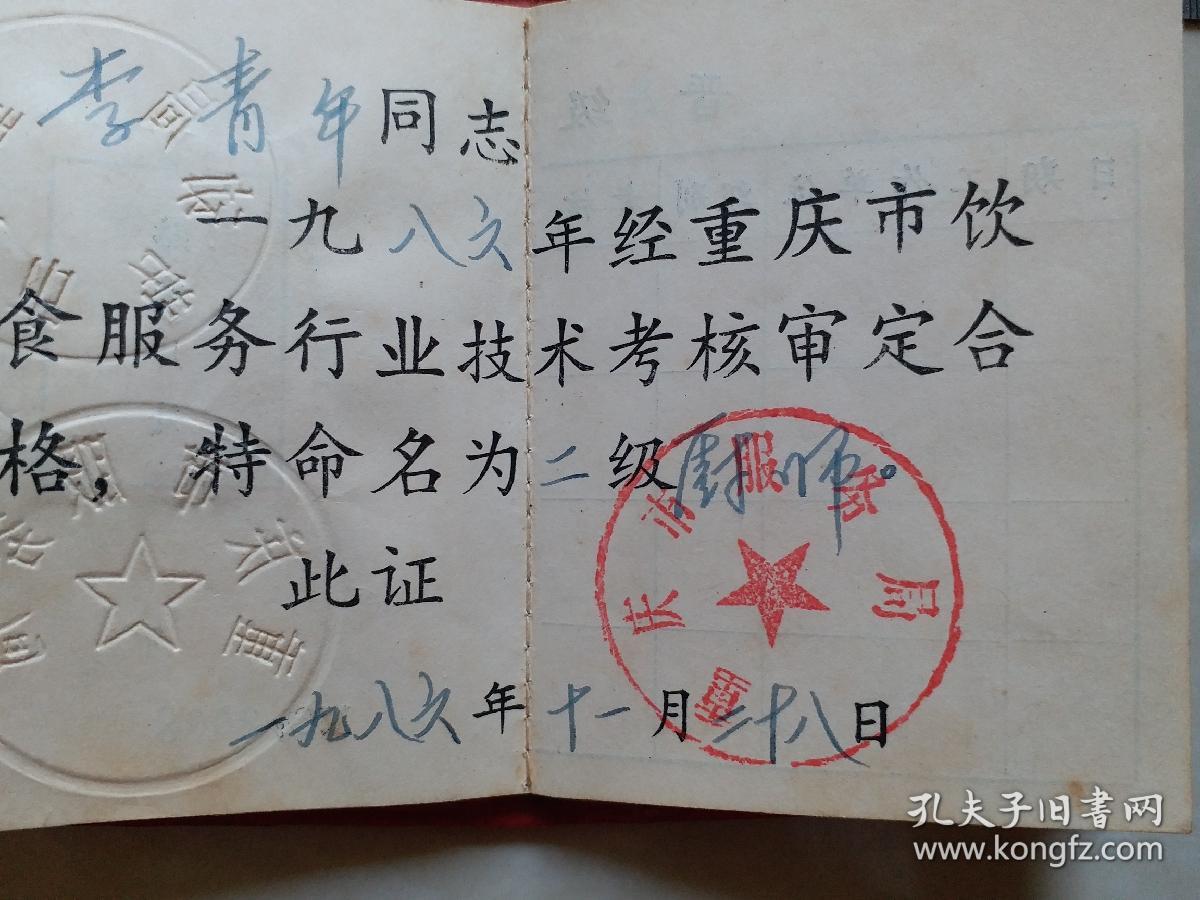 李青年同志
一九八六年经重庆市饮
食服务行业技术考核审定合
格，特命名为二级厨师。
此证
重庆市服务局
一九八六年十一月二十八日
孔夫子旧书网
www.kongfz.com